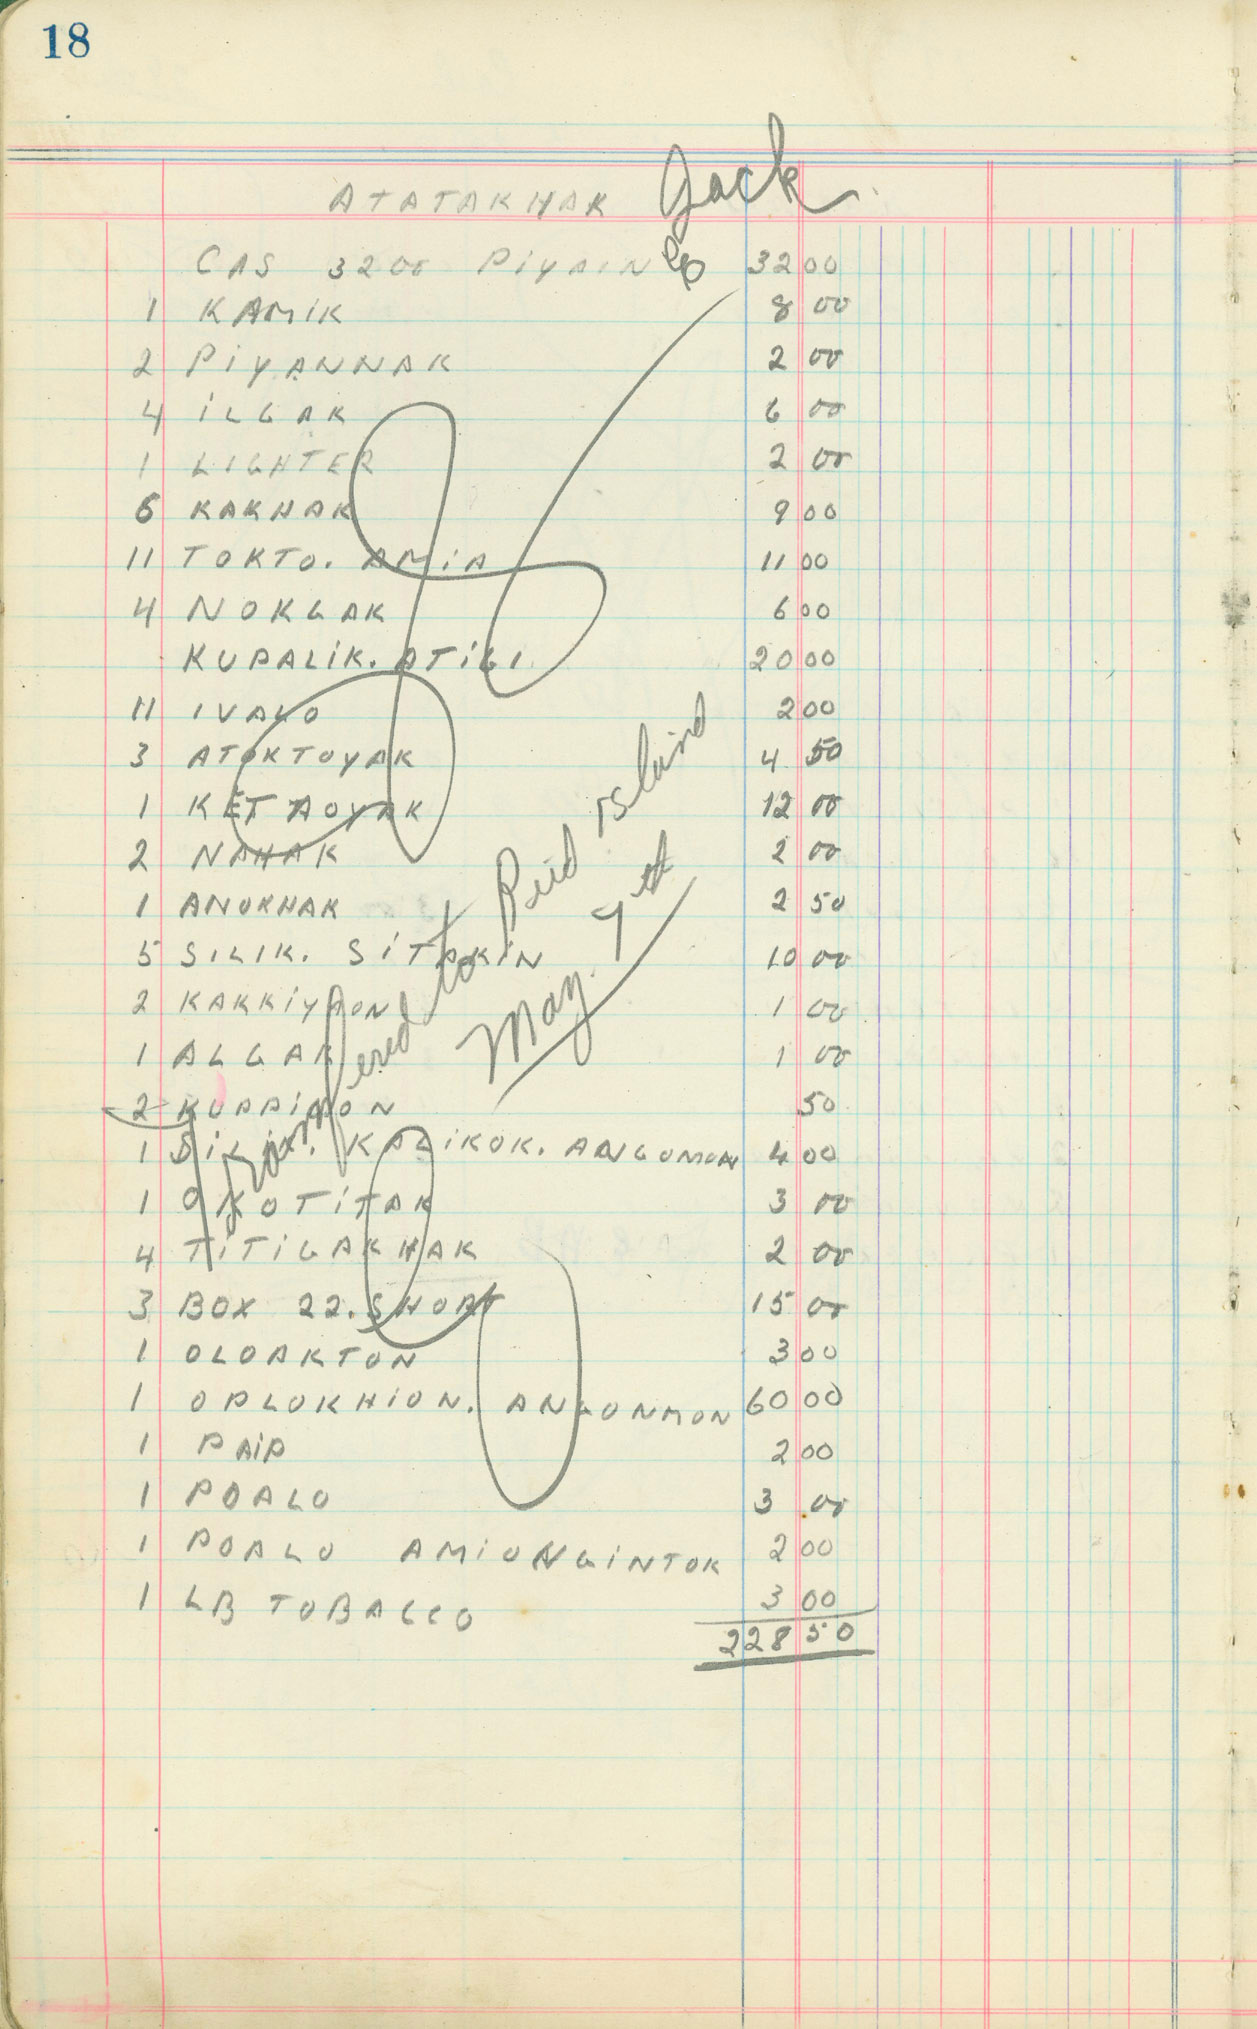 18
ATATAKHAK Jack
CAS 3200 PiYAiN 32 00
1 KAMiK 8 00
2 PiYANNAK 2 00
4 iLGAK 6 00
1 LIGHTER 2 00
6 KAKHAK 9 00
11 TOKTO. AMiA 11 00
4 NOKGAK 6 00
KUPALiK. ATiGI 20 00
11 IVALO 2 00
3 ATOKTOYAK 4 50
1 KETAOYAK 12 00
2 NAHAK 2 00
1 ANOKHAK 2 50
5 SILIK. SiTAKiN 10 00
2 KAKKiYAON 1 00
1 ALGAK 1 00
2 50
1 KALiKOK. ANGOMON 4 00
1 OKOTiTAK 3 00
4 TiTiGAKHAK 2 00
3 BOX 22. SHORT 15 00
1 OLOAKTON 3 00
1 OPLOKHiON. ANGONMON 60 00
1 PAiP 2 00
1 POALO 3 00
1 POALO AMiONGiNTOK 2 00
1 LB TOBACCO 3 00
228 50
Transfered to Reid island
May. 7th